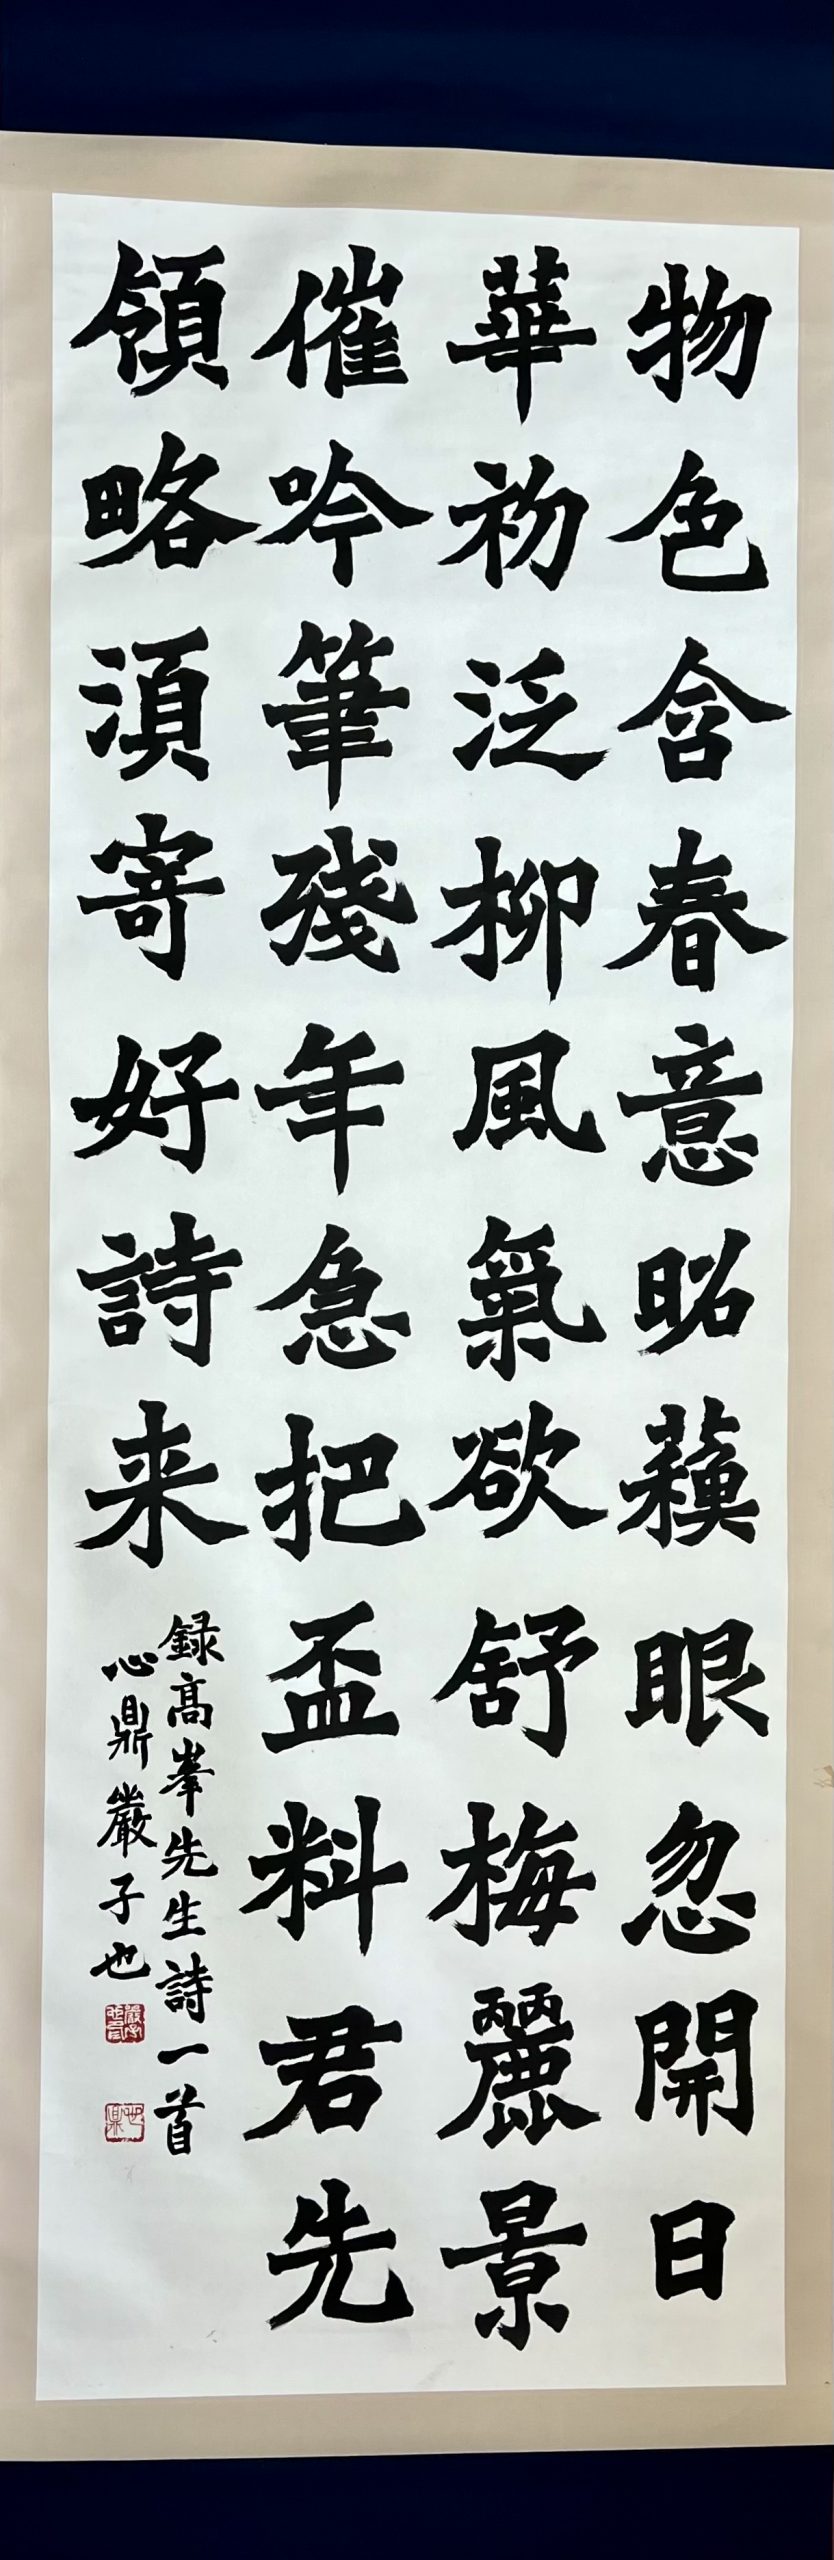 物色含春意昭蘓眼忽開日
華初泛柳風氣欲舒梅麗景
催吟筆殘年急把盃料君先
領略湏寄好詩来
録高峯先生詩一首
心鼎嚴子也